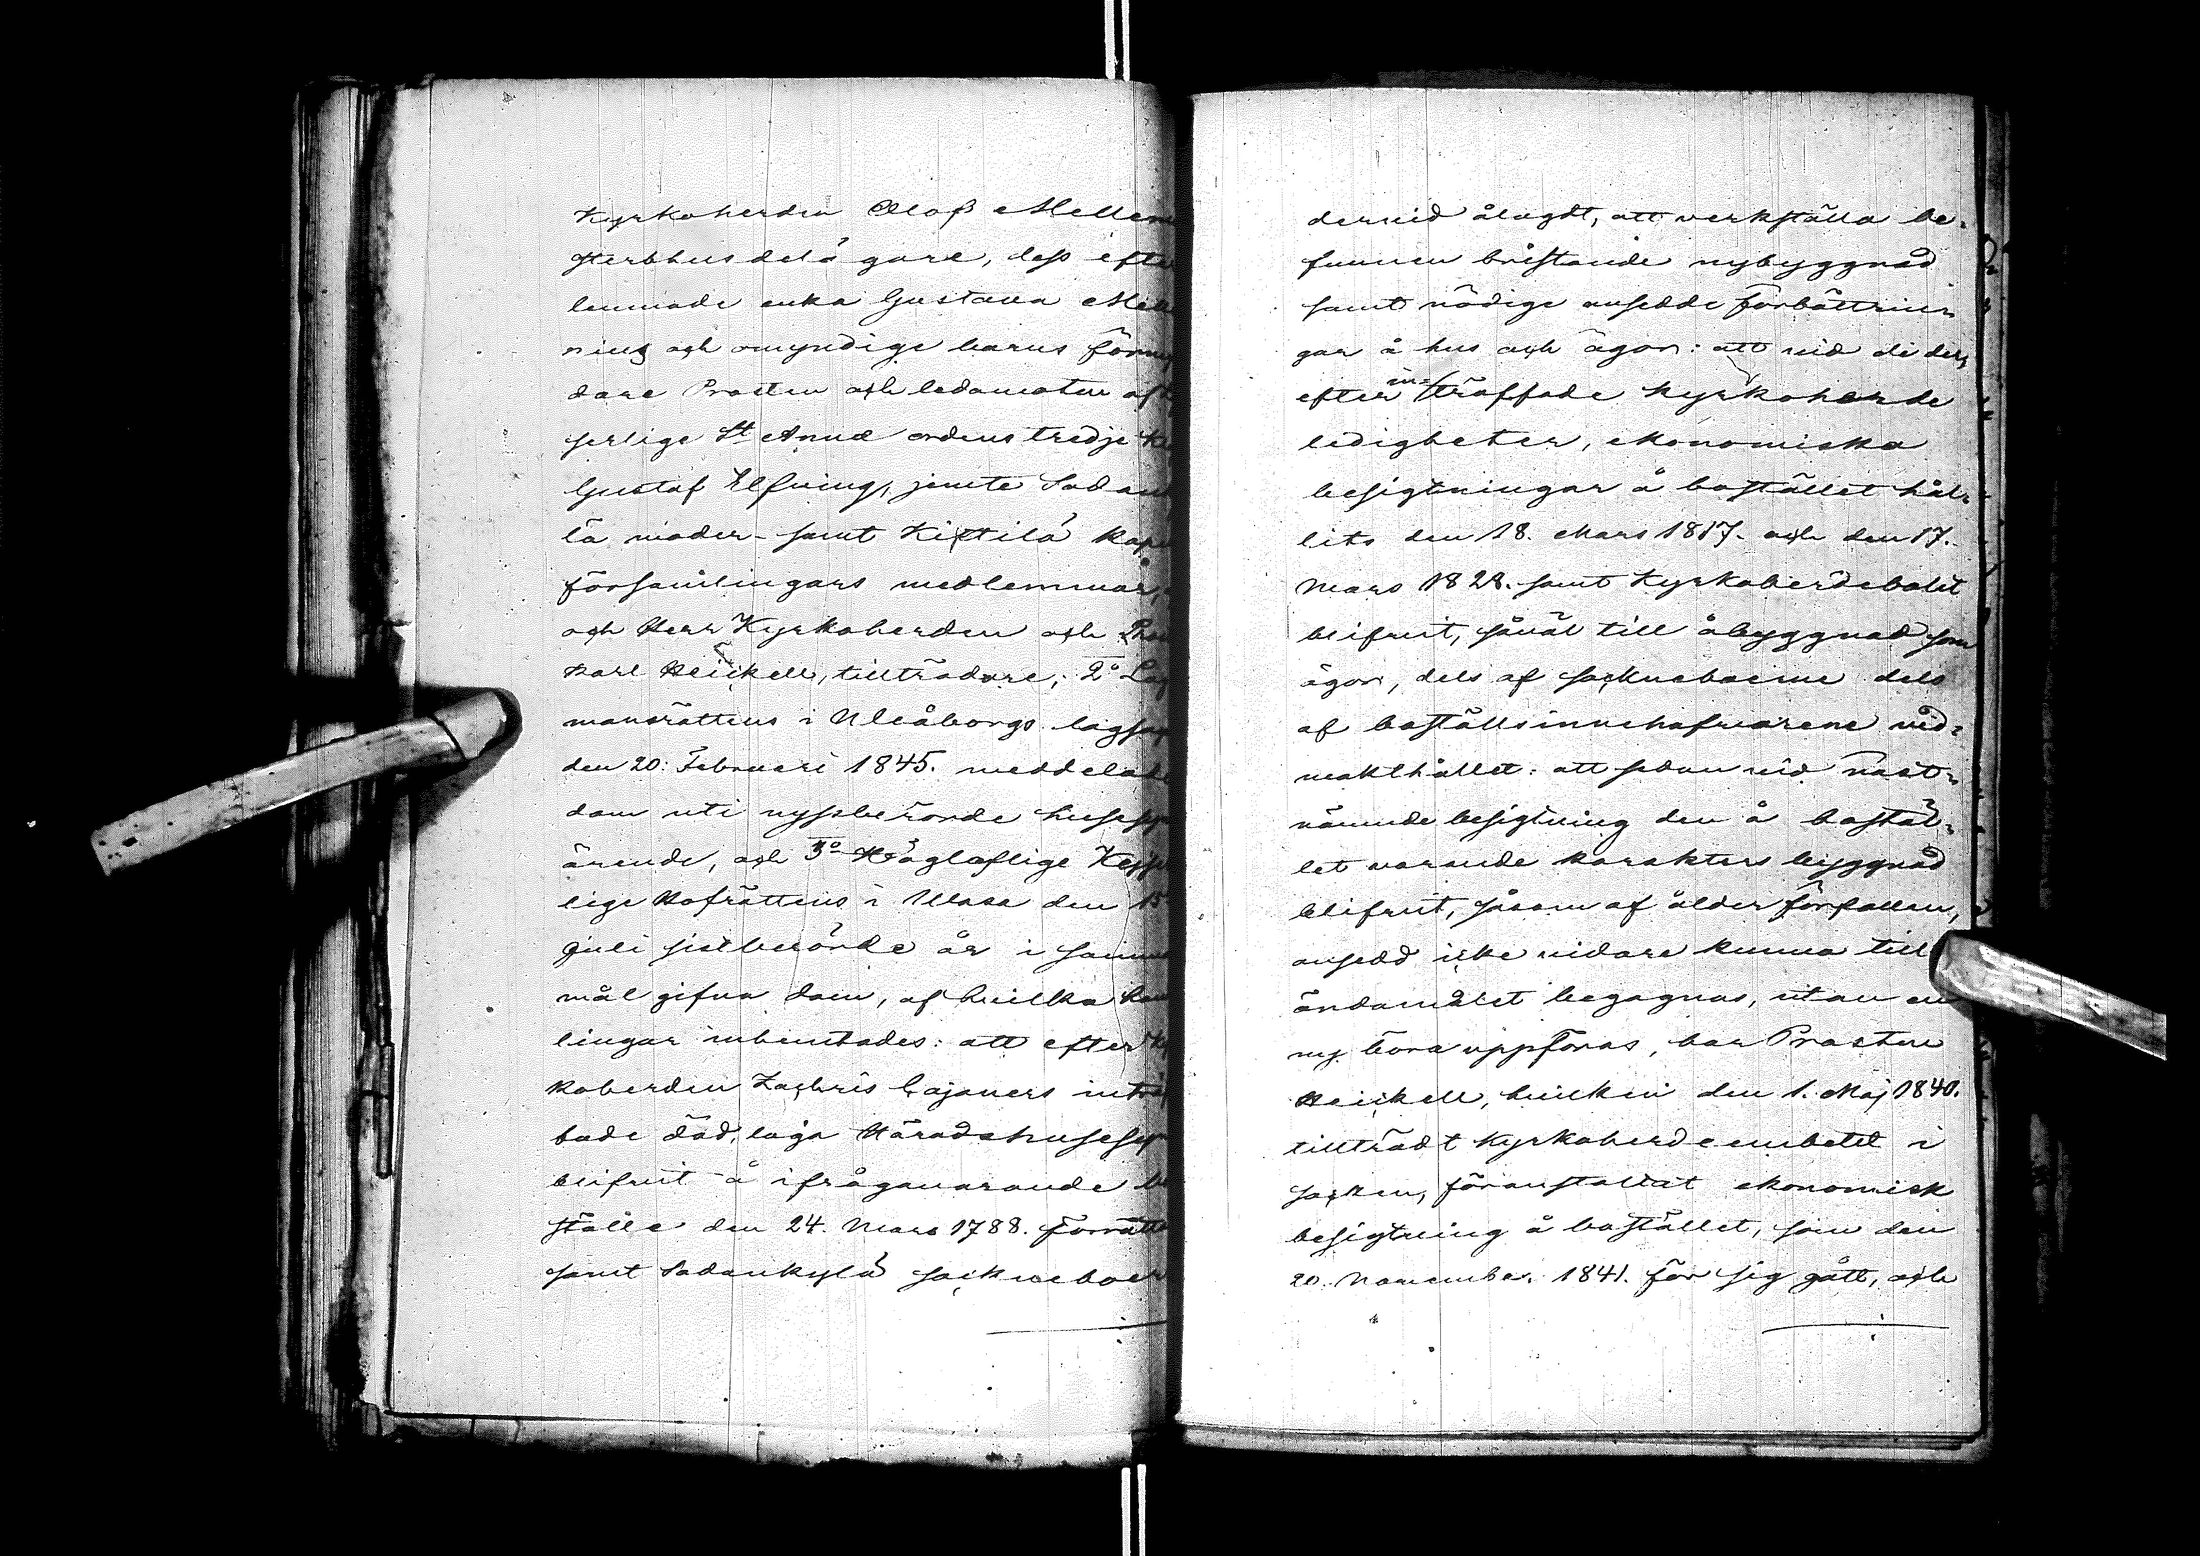 Kyrkoherden Olof Mellen
sterbhusdelägare, dess efte
lemnade enka Gustava Mell
ning och omyndige barns förmy
dare Prosten och ledamoten af
serlige St Annæ ordens tredje kl
Gustaf Elfving, jemte Sodan
lä moder- samt Kittilä kap
församlingars medlemmar,
och Herr Kyrkoherden och Pro
Karl Heickell, tillträdare; 2o Lag
mansrättens i Uleåborgs lagsag
den 20. Februari 1845. meddelade
dom uti nyssberörde husesyn
ärende, och 3o Högloflige Kejser
lige Hofrättens i Wasa den 15
Juli sistberörde år i samma
mål gifna dom, af hvilka han
lingar inhemtades: att efter Ky
koherden Zachris Cajaners inträf
fade död, laga Häradshusesyn
blifvit å ifrågavarande bo
ställe den 24. Mars 1788. förrätt
samt Sodankylä sockneboer
dervid ålagdt, att verkställa be-
funnen bristande nybyggnad
samt nödige ansedde förbättrin-
gar å hus och ägor: att vid de der-
efter in- träffade Kyrkoherde
ledigheter, ekonomiska
besigtningar å bostället hål-
lits den 18. Mars 1817. och den 17.
Mars 1828. samt Kyrkoherdebolet
blifvit, såväl till åbyggnad som
ägor, dels af sockneboerne dels
af boställsinnehafvarene vid-
makthållet: att sedan vid näst-
nämnde besigtning den å bostäl-
let varande karakters byggnad
blifvit, såsom af ålder förfallen,
ansedd icke vidare kunna till
ändamålet begagnas, utan en
ny böra uppföras, har Prosten
Heickell, hvilken den 1. Maj 1840.
tillträdt Kyrkoherdeembetet i
socken, föranstaltat ekonomisk
besigtning å bostället, som den
20. November 1841. för sig gått, och